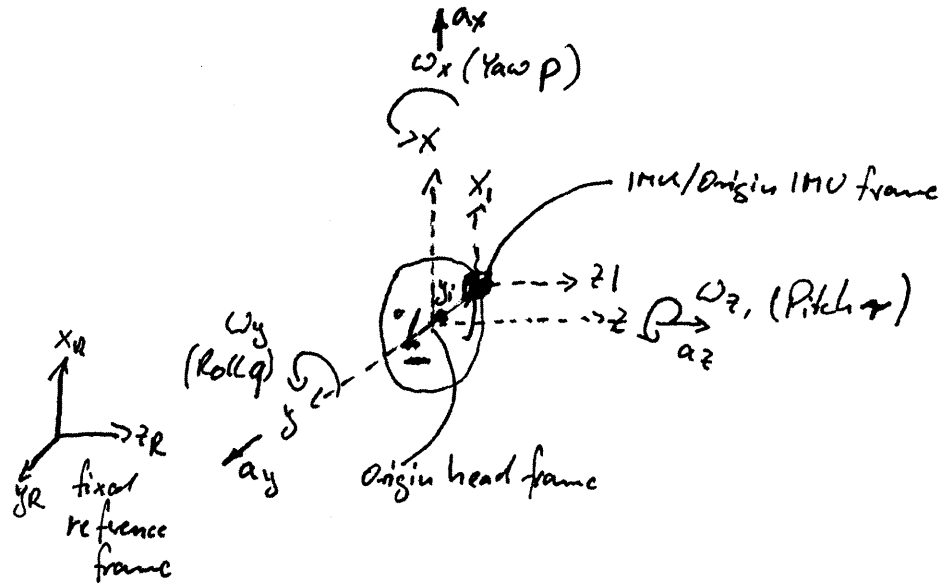 ax
ωx (Yaw p)
X
X1
IMU/Origin IMU frame
y1
z1
z
ωz, (Pitch r)
az
ωy
(Roll q)
y
ay
Origin head frame
xR
zR
yR
fixed
reference
frame